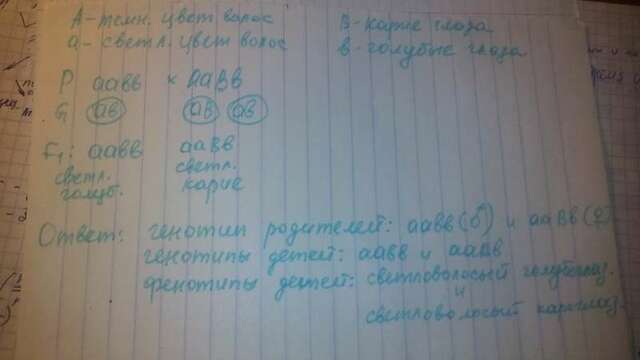 А-темн. цвет волос
В-карие глаза
а- светл. цвет волос
в-голубые глаза
Р аавв × ааВв
G ав аВ ав
F₁: аавв ааВв
светл. светл.
голуб. карие
Ответ: генотип родителей: аавв(♂) и ааВв(♀)
генотипы детей: аавв и ааВв
фенотипы детей: светловолосый голубоглаз.
и
светловолосый кареглаз.